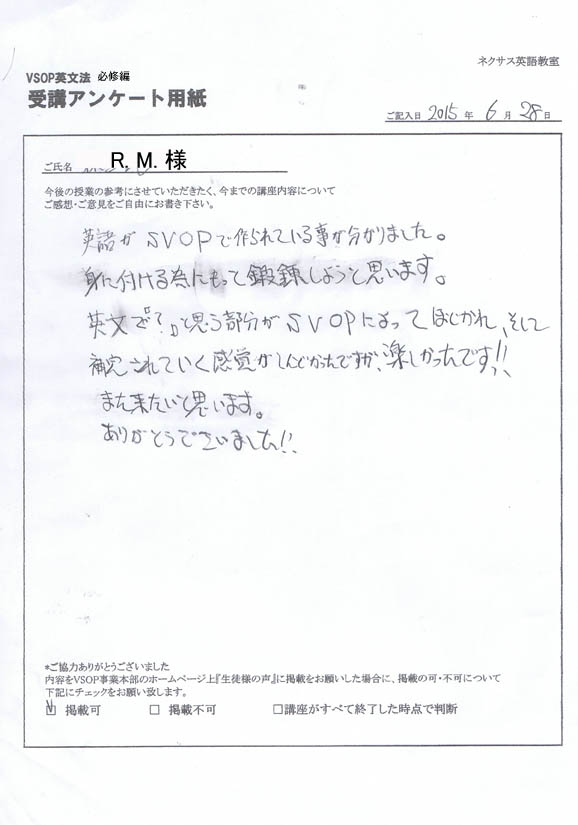 ネクサス英語教室
VSOP英文法 必修編
受講アンケート用紙
ご記入日 2015 年 6 月 28 日
ご氏名 R. M. 様
今後の授業の参考にさせていただきたく、今までの講座内容について
ご感想・ご意見をご自由にお書き下さい。
英語がSVOPで作られている事が分かりました。
身に付ける為にもって鍛錬しようと思います。
英文で『?』と思う部分がSVOPによってはじかれ、そして
補完されていく感覚がしんどかったですが、楽しかったです!!
また来たいと思います。
ありがとうございました!!
*ご協力ありがとうございました
内容をVSOP事業本部のホームページ上『生徒様の声』に掲載をお願いした場合に、掲載の可・不可について
下記にチェックをお願い致します。
☑ 掲載可 □ 掲載不可 □講座がすべて終了した時点で判断